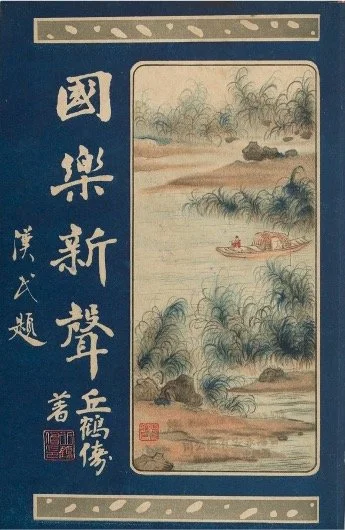 國樂新聲
丘鶴儔
著
漢民題